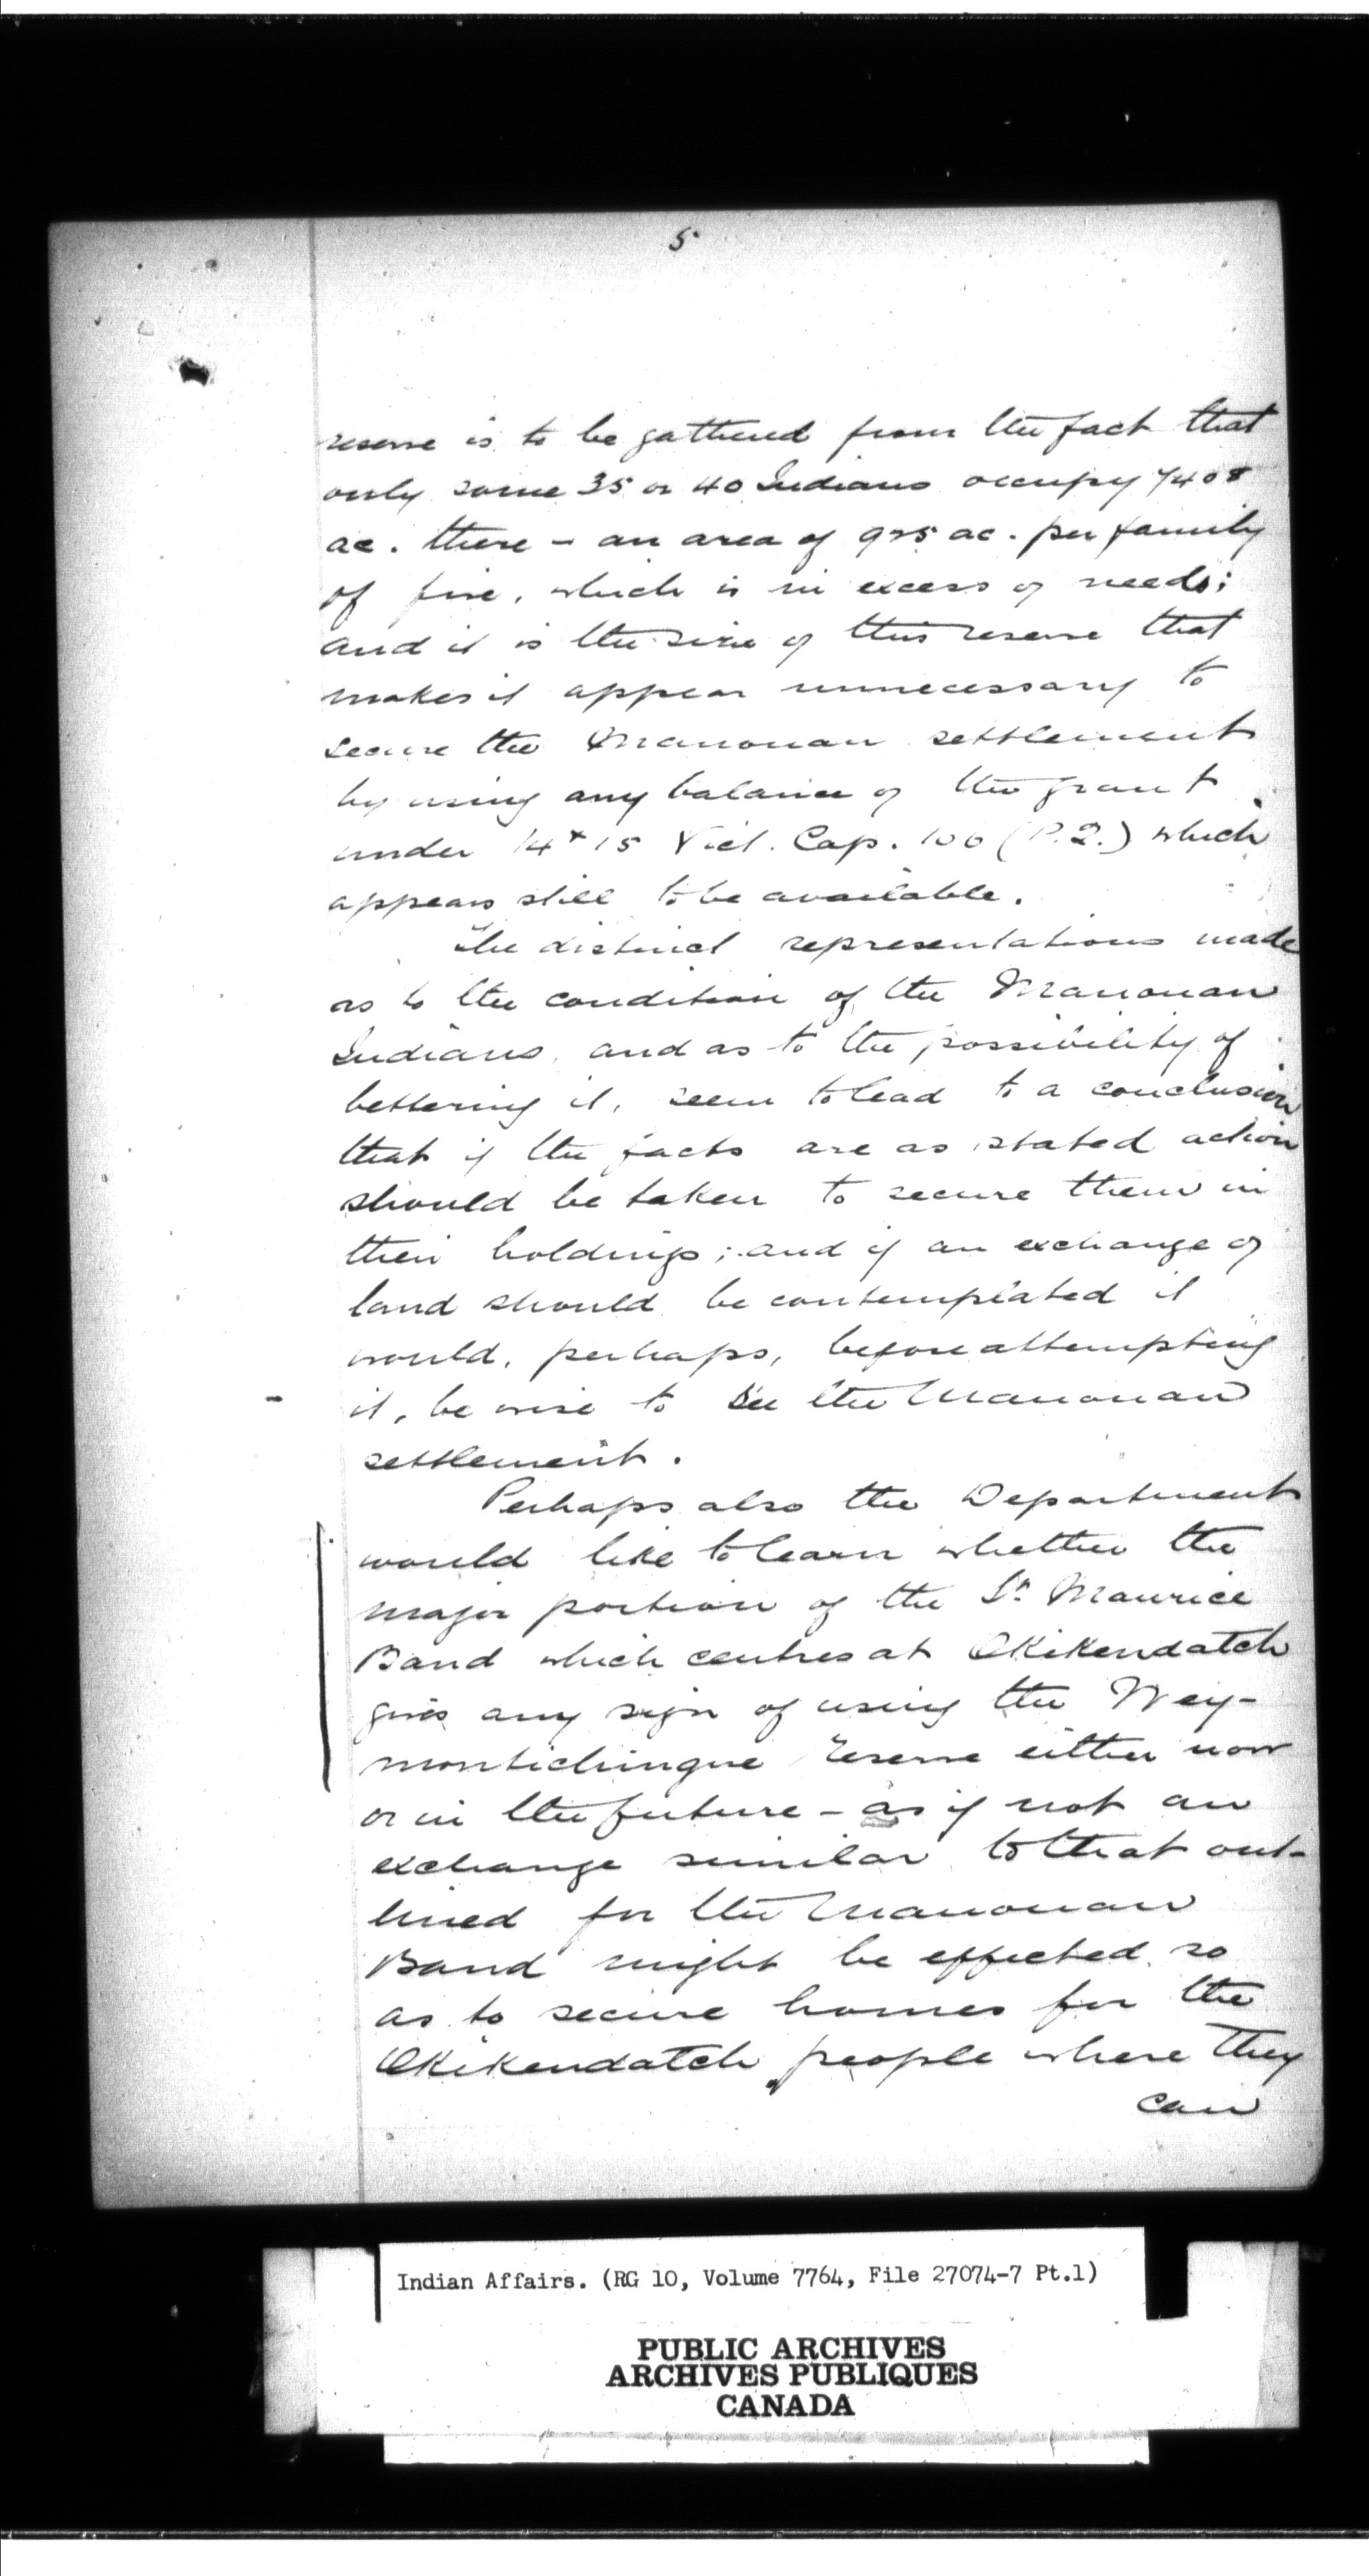 5
reserve is to be gathered from the fact that
only some 35 or 40 Indians occupy 7408
ac. there - an area of 925 ac. per family
of five, which is in excess of needs;
and it is the size of this reserve that
makes it appear unnecessary to
secure the Manouan settlement
by using any balance of the grant
under 14 & 15 Vict. Cap. 106 (P.Q.) which
appears still to be available.
The distinct representations made
as to the condition of the Manouan
Indians, and as to the possibility of
bettering it, seem to lead to a conclusion
that if the facts are as stated action
should be taken to secure them in
their holdings; and if an exchange of
land should be contemplated it
would, perhaps, before attempting
it, be wise to see the Manouan
settlement.
Perhaps also the Department
would like to learn whether the
major portion of the St. Maurice
Band which centres at Okikendatch
gives any sign of using the Wey-
montichingue reserve either now
or in the future - as if not an
exchange similar to that out-
lined for the Manouan
Band might be effected so
as to secure homes for the
Okikendatch people where they
can
Indian Affairs. (RG 10, Volume 7764, File 27074-7 Pt.1)
PUBLIC ARCHIVES
ARCHIVES PUBLIQUES
CANADA